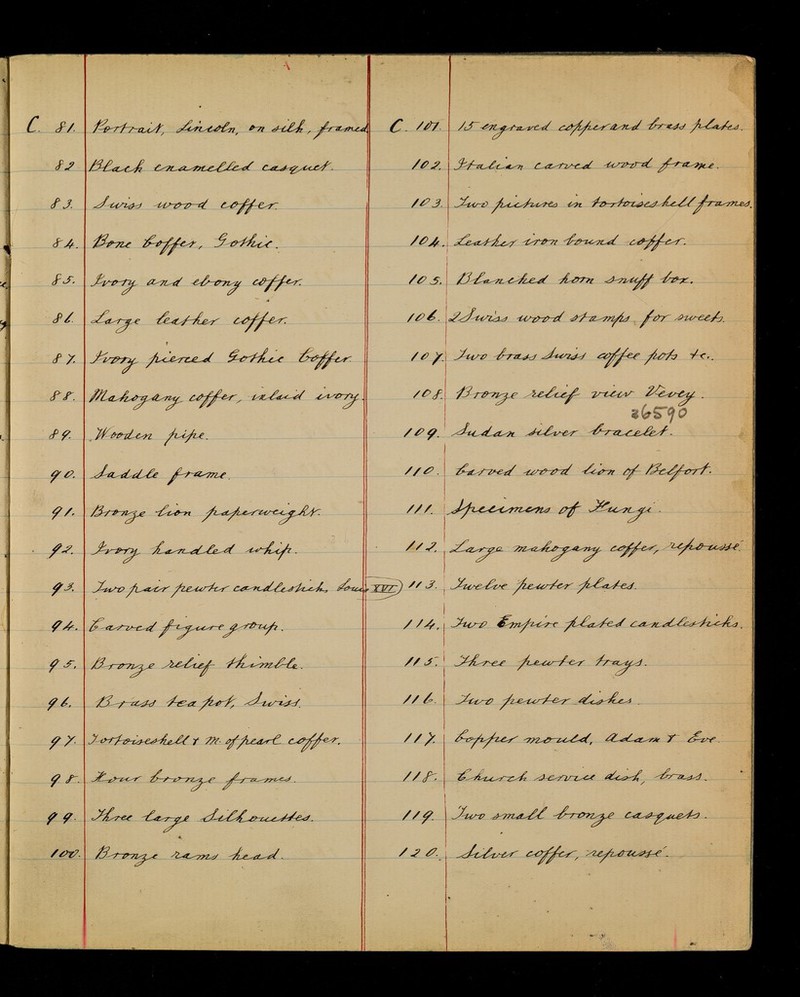 C. 81. Portrait, Lincoln, on silk, framed
82 Black enamelled casquet.
83. Swiss wood coffer.
84. Bone Coffer, Gothic.
85. Ivory and ebony coffer.
86. Large leather coffer.
87. Ivory pierced Gothic Coffer
88. Mahogany coffer, inlaid ivory.
89. Wooden pipe.
90. Saddle frame.
91. Bronze lion paperweight.
92. Ivory handled whip.
93. Two pair pewter candlesticks, Louis XVI
94. Carved figure group.
95. Bronze relief thimble.
96. Brass tea pot, Swiss.
97. Tortoiseshell & m. of pearl coffer.
98. Four bronze frames.
99. Three large Silhouettes.
100. Bronze rams head.
C. 101. 15 engraved copper and brass plates.
102. Italian carved wood frame.
103. Two pictures in tortoiseshell frames.
104. Leather iron bound coffer.
105. Blanched horn snuff box.
106. 2 Swiss wood stamps for sweets.
107. Two brass Swiss coffee pots &c.
108. Bronze relief view Vevey.
36590
109. Sudan silver bracelet.
110. Carved wood lion of Belfort.
111. Specimens of Fungi.
112. Large mahogany coffer, repoussé.
113. Twelve pewter plates.
114. Two Empire plated candlesticks.
115. Three pewter trays.
116. Two pewter dishes
117. Copper mould, Adam & Eve.
118. Church service dish, brass.
119. Two small bronze casquets.
120. Silver coffer, repoussé.